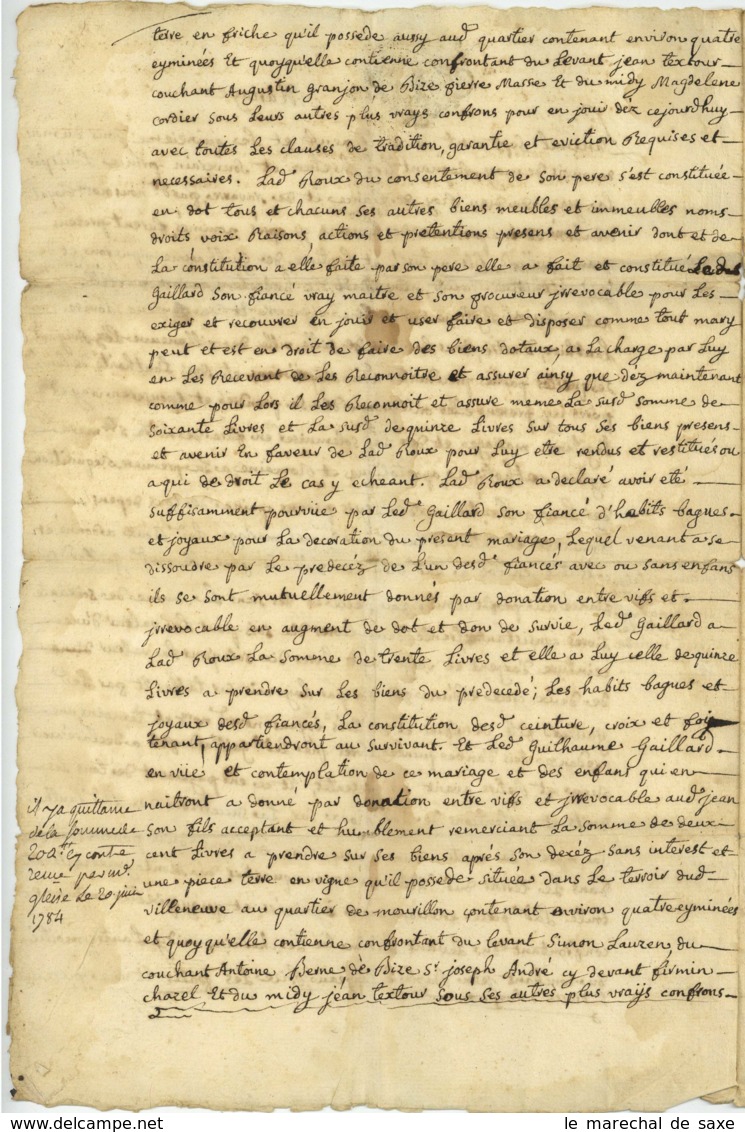 terre en friche qu'il possede aussy aud. quartier contenant environ quatre
eyminées Et quoyqu'elle contienne confrontant du Levant jean textour
couchant Augustin granjon de Bize pierre Masse Et du midy Magdelene
Cordier sous Leurs autres plus vrays confrons pour en jouir déz cejourdhuy
avec toutes Les clauses de tradition, garantie et eviction Requises et
necessaires. Lad. Roux du consentement de son pere s'est constituée
en dot tous et chacuns ses autres biens meubles et immeubles noms
droits voix Raisons, actions et pretentions presens et avenir dont et de
La constitution a elle faite par son pere elle a fait et constitué Led.
Gaillard son fiancé vray maitre et son procureur jrrevocable pour Les
exiger et recouvrer en jouir et user faire et disposer comme tout mary
peut et est en droit de faire des biens dotaux, a La charge par Luy
en Les Recevant de Les Reconnoitre et assurer ainsy que déz maintenant
comme pour Lors il Les Reconnoit et assure meme La susd. somme de
soixante Livres et La susd. de quinze Livres sur tous ses biens presens
et avenir En faveur de Lad. Roux pour Luy etre rendus et restitués ou
a qui de droit Le cas y echeant. Lad. Roux a declaré avoir eté
suffisamment pourvüe par Led. Gaillard son fiancé d'habits bagues
et joyaux pour La decoration du present mariage, Lequel venant a se
dissoudre par Le predecéz de L'un desd. fiancés avec ou sans enfans
ils se sont mutuellement donnés par donation entre vifs et
jrrevocable en augment de dot et don de survie, Led. Gaillard a
Lad. Roux La somme de trente Livres et elle a Luy celle de quinze
Livres a prendre sur Les biens du predecedé; Les habits bagues et
joyaux desd. fiancés, La constitution desd. ceinture, croix et
tenant, appartiendront au survivant. Et Led. Guilhaume Gaillard
en vüe et contemplation de ce mariage et des enfans qui en
naitront a donné par donation entre vifs et jrrevocable aud. jean
son fils acceptant et humblement remerciant La somme de deux
cent Livres a prendre sur ses biens aprés son decéz sans interest et
une piece terre en vigne qu'il possede située dans Le terroir dud.
villeneuve au quartier de mourillon contenant environ quatre eyminées
et quoyqu'elle contienne confrontant du levant Simon Lauzen du
couchant Antoine Berne de Bize Sr. joseph André cy devant firmin
chazel Et du midy jean textour sous ses autres plus vrays confrons
il y a quittance
de la somme de
200lt cy contre
reçue par me.
le 20 juin
1784
le marechal de saxe